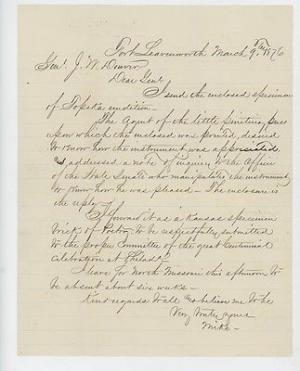 Fort Leavenworth March 9th 1876
Genl. J. W. Denver
Dear Genl
I send the enclosed specimen
of Topeka erudition.
The Agent of the little printing press
upon which the enclosed was printed, desired
to know how the instrument was appreciated
& addressed a note of inquiry to the officer
of the State Senate who manipulates the instrument
to know how he was pleased — The enclosure is
the reply.
I forward it as a Kansas specimen
brick of Poetry to be respectfully submitted
to the proper Committee of the great Centennial
Celebration at Philada.
I leave for North Missouri this afternoon to
be absent about six weeks —
Kind regards to all & believe me to be
Very truly yours
Mike —